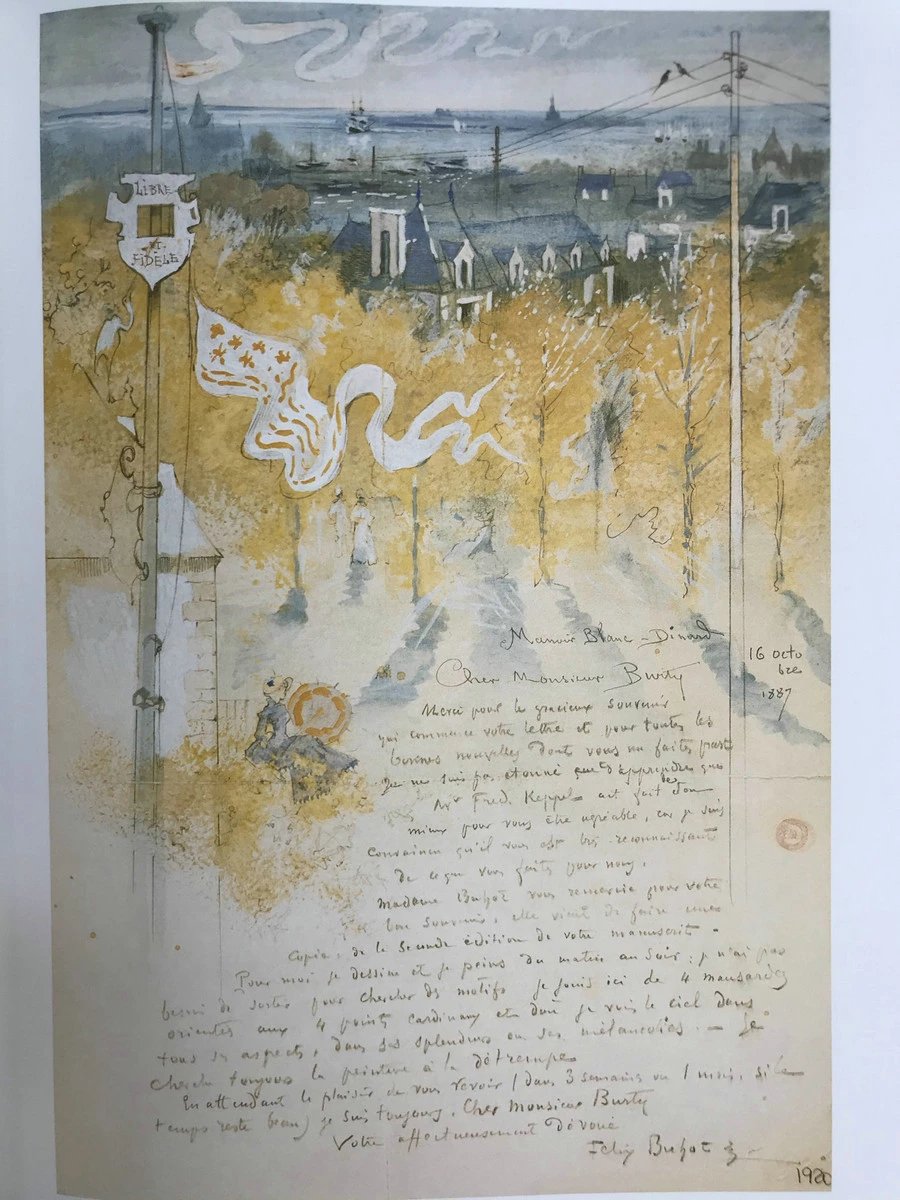 LIBRE
ET
FIDELE
Manoir Blanc - Dinard
16 octo
bre
1887
Cher Monsieur Burty
Merci pour le gracieux souvenir
qui commence votre lettre et pour toutes les
bonnes nouvelles dont vous me faites part
Je ne suis pas étonné que d'apprendre que
Mr Fred. Keppel ait fait de son
mieux pour vous être agréable, car je suis
convaincu qu'il vous est très reconnaissant
de ce que vous faites pour nous.
Madame Buhot vous remercie pour votre
bon souvenir, elle vient de faire une
copie de la seconde édition de votre manuscrit.
Pour moi je dessine et je peins du matin au soir : je n'ai pas
besoin de sortir pour chercher des motifs je jouis ici de 4 mansardes
orientées aux 4 points cardinaux et d'où je vois le ciel dans
tous ses aspects, dans ses splendeurs ou ses mélancolies. — Je
cherche toujours la peinture à la détrempe
En attendant le plaisir de vous revoir (dans 3 semaines ou 1 mois, si le
temps reste beau) je suis toujours, Cher Monsieur Burty
Votre affectueusement dévoué
Felix Buhot
1920